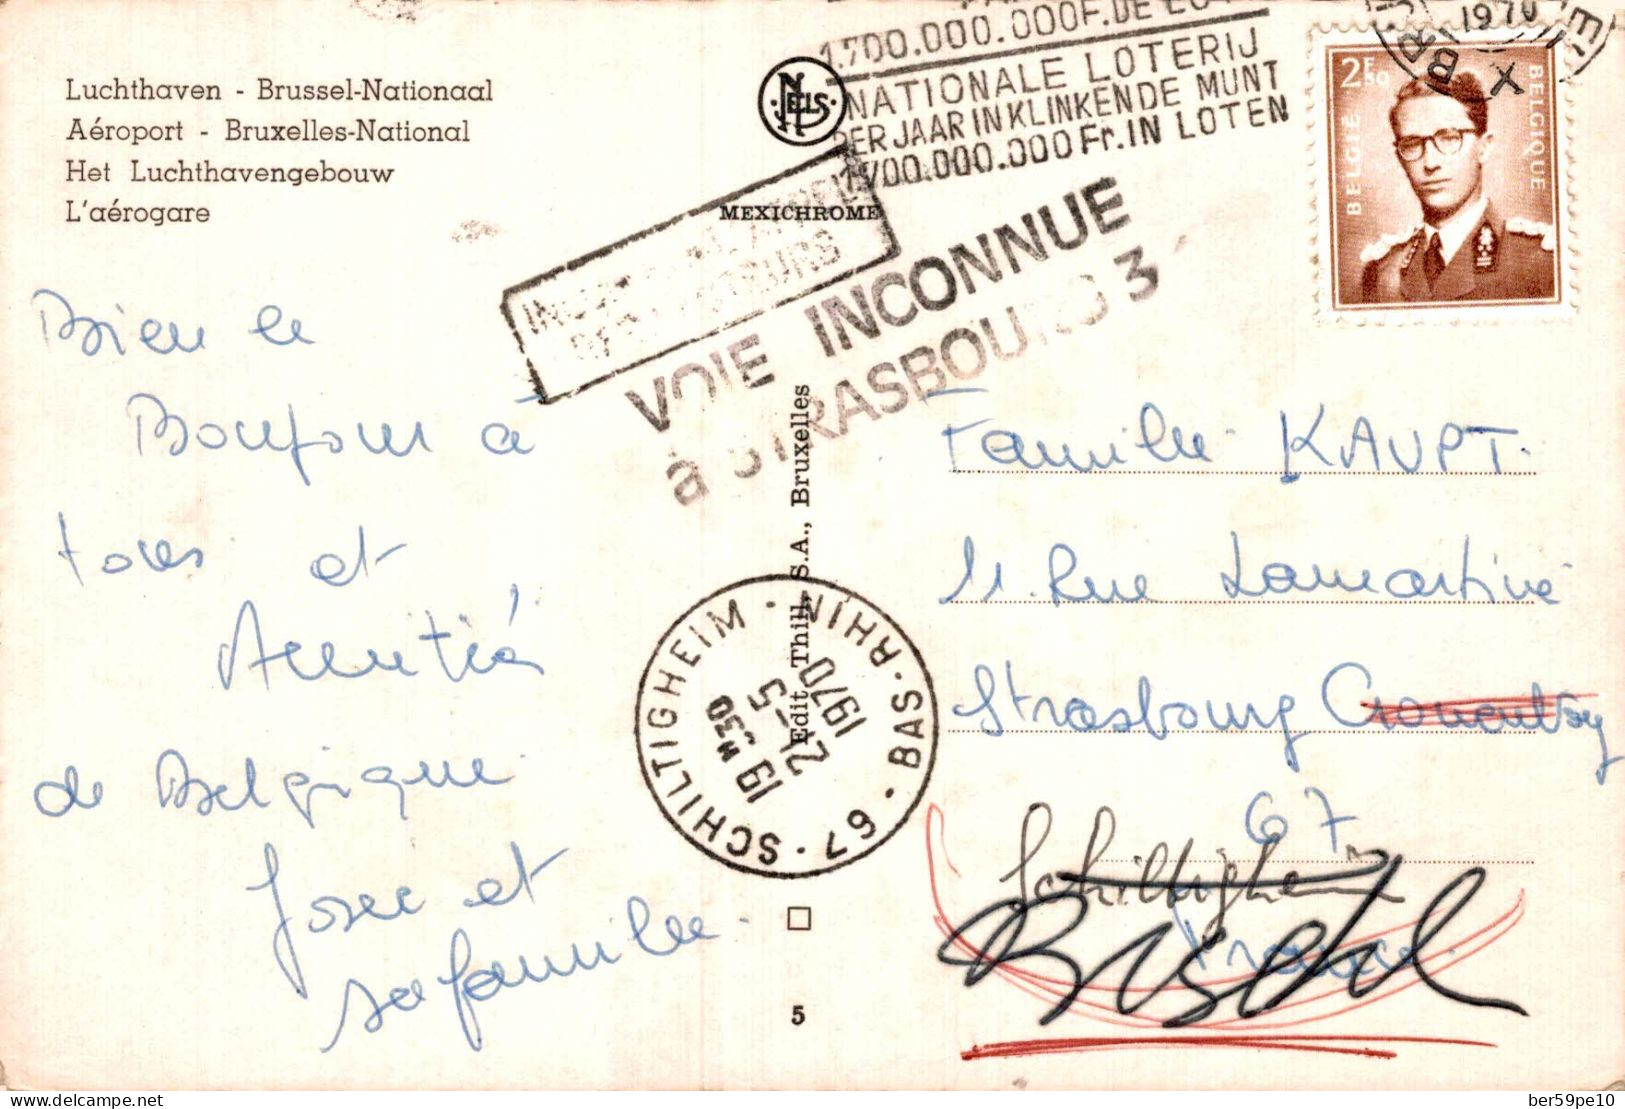 Luchthaven - Brussel-Nationaal
Aéroport - Bruxelles-National
Het Luchthavengebouw
L'aérogare
NELS
MEXICHROME
1.700.000.000F. DE
NATIONALE LOTERIJ
PER JAAR IN KLINKENDE MUNT
1.700.000.000 Fr. IN LOTEN
1970
2F50
BELGIË
BELGIQUE
VOIE INCONNUE
à STRASBOURG 3
Bien le
Bonjour à
tous et
Amitié
de Belgique
José et
sa famille.
Edit. Thill, S.A., Bruxelles
67 · SCHILTIGHEIM · BAS-RHIN
19 H 30
21-5
1970
5
Famille KAUPT.
11. Rue Lamartine
Strasbourg Cronenbourg
67
Schiltigheim
France.
delcampe.net
ber59pe10